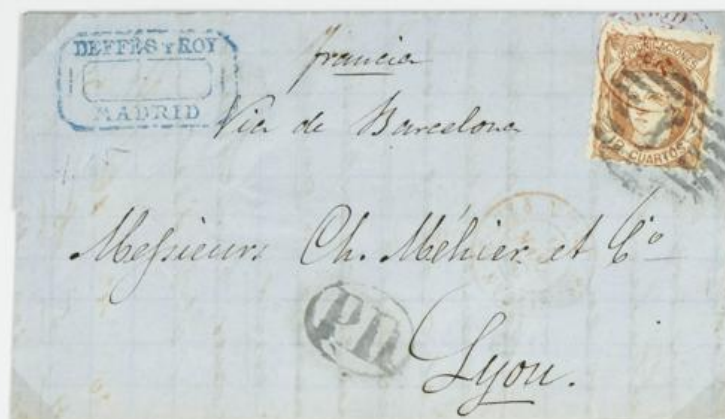 DEFFÈS Y ROY
MADRID
francia
Via de Barcelona
COMUNICACIONES
12 CUARTOS
Messieurs Ch. Méhier et Cº
PD
Lyon.